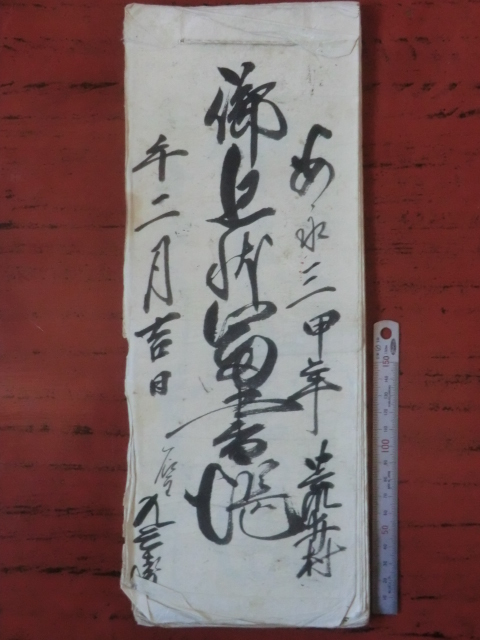 安永三甲年 荒井村
御上状留書帳
午二月吉日